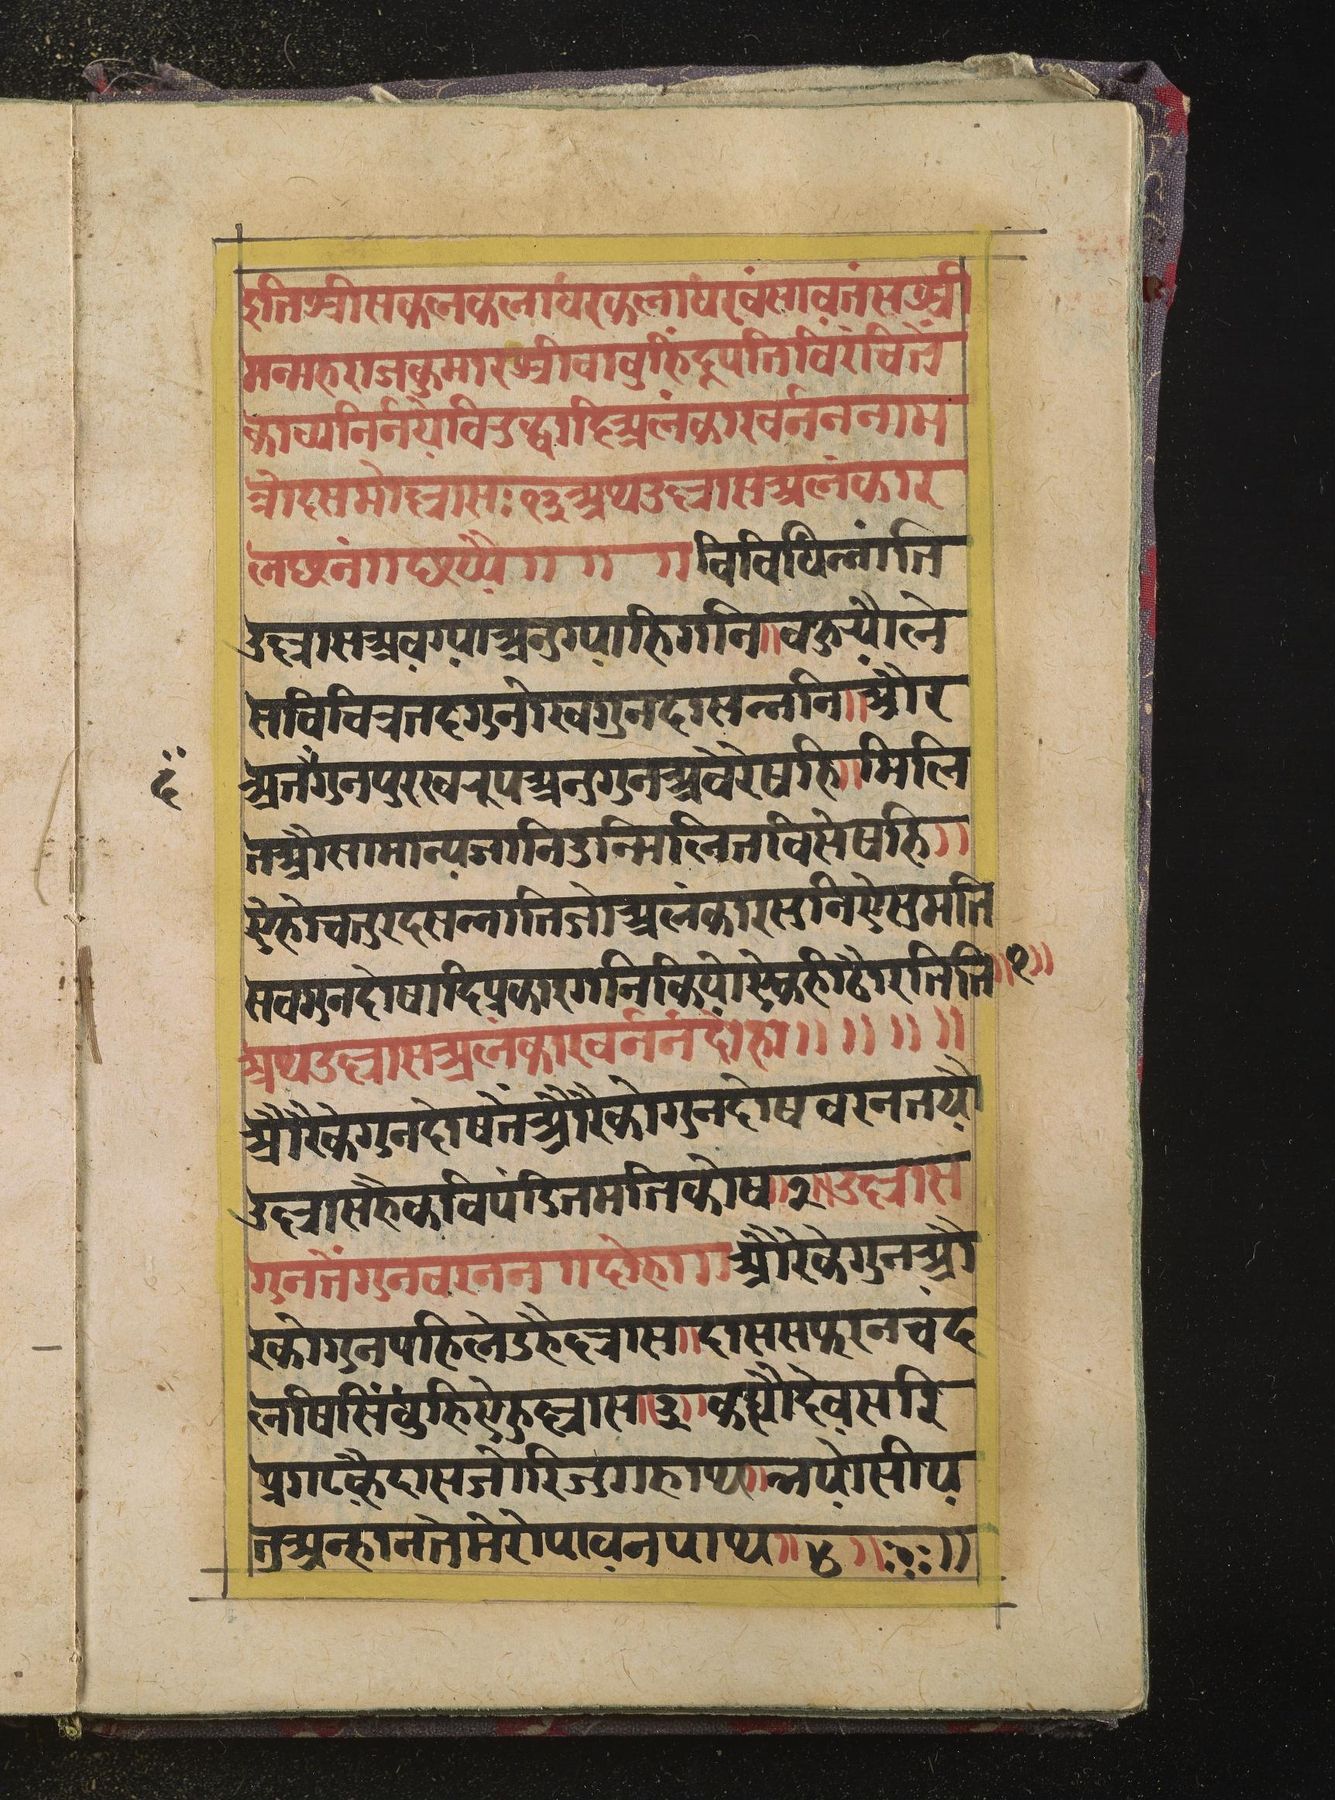 इतिश्रीसकलकलाधरकलाधरवंसावतंसश्री
मन्महराजकुमारश्रीवावुहिंदूपतिविरंचितें
काव्यनिर्नयेविउद्धादिअलंकारवर्नननाम
त्रोदसमोह्लासः१३अथउह्लासअलंकार
लछनं॥छप्पै॥ ॥ ॥विविधिन्नांति
उह्लासअवग्याअनुग्याहिगनि॥वहुर्यौले
सविचित्रतद्गुनोस्वगुनदासन्ननि॥और
अतंगुनपुरवरूपअनुगुनअवरेषहि॥मिलि
तऔसामान्यजानिउन्मिलितविसेषहि॥
ऐहोचतुरदसन्नातिजोअलंकारसुनिऐसुमति
सवगुनदोषादिप्रकारगनिकियोऐकहीठौरतिति॥१॥
अथउह्लासअलंकारवर्ननंदोहा॥ ॥ ॥ ॥
औरैकेगुनदोषतेंऔरैकोगुनदोषवरनतयों
उह्लासहैकविपंडितमतिकोष॥२॥उह्लास
गुनतेंगुनवरनन॥दोहा॥औरैकेगुनऔ
रकोगुनपहिलेउहैह्लास॥दाससफरनचंद
लषिसिंधुहिऐहुह्लास॥३॥कह्यौदेवसरि
प्रगटह्वैदासजोरिजुगहाथ॥न्नयोसीय
तुअन्हानतेमेरोपावनपाथ॥४॥ः॰ः॥
६